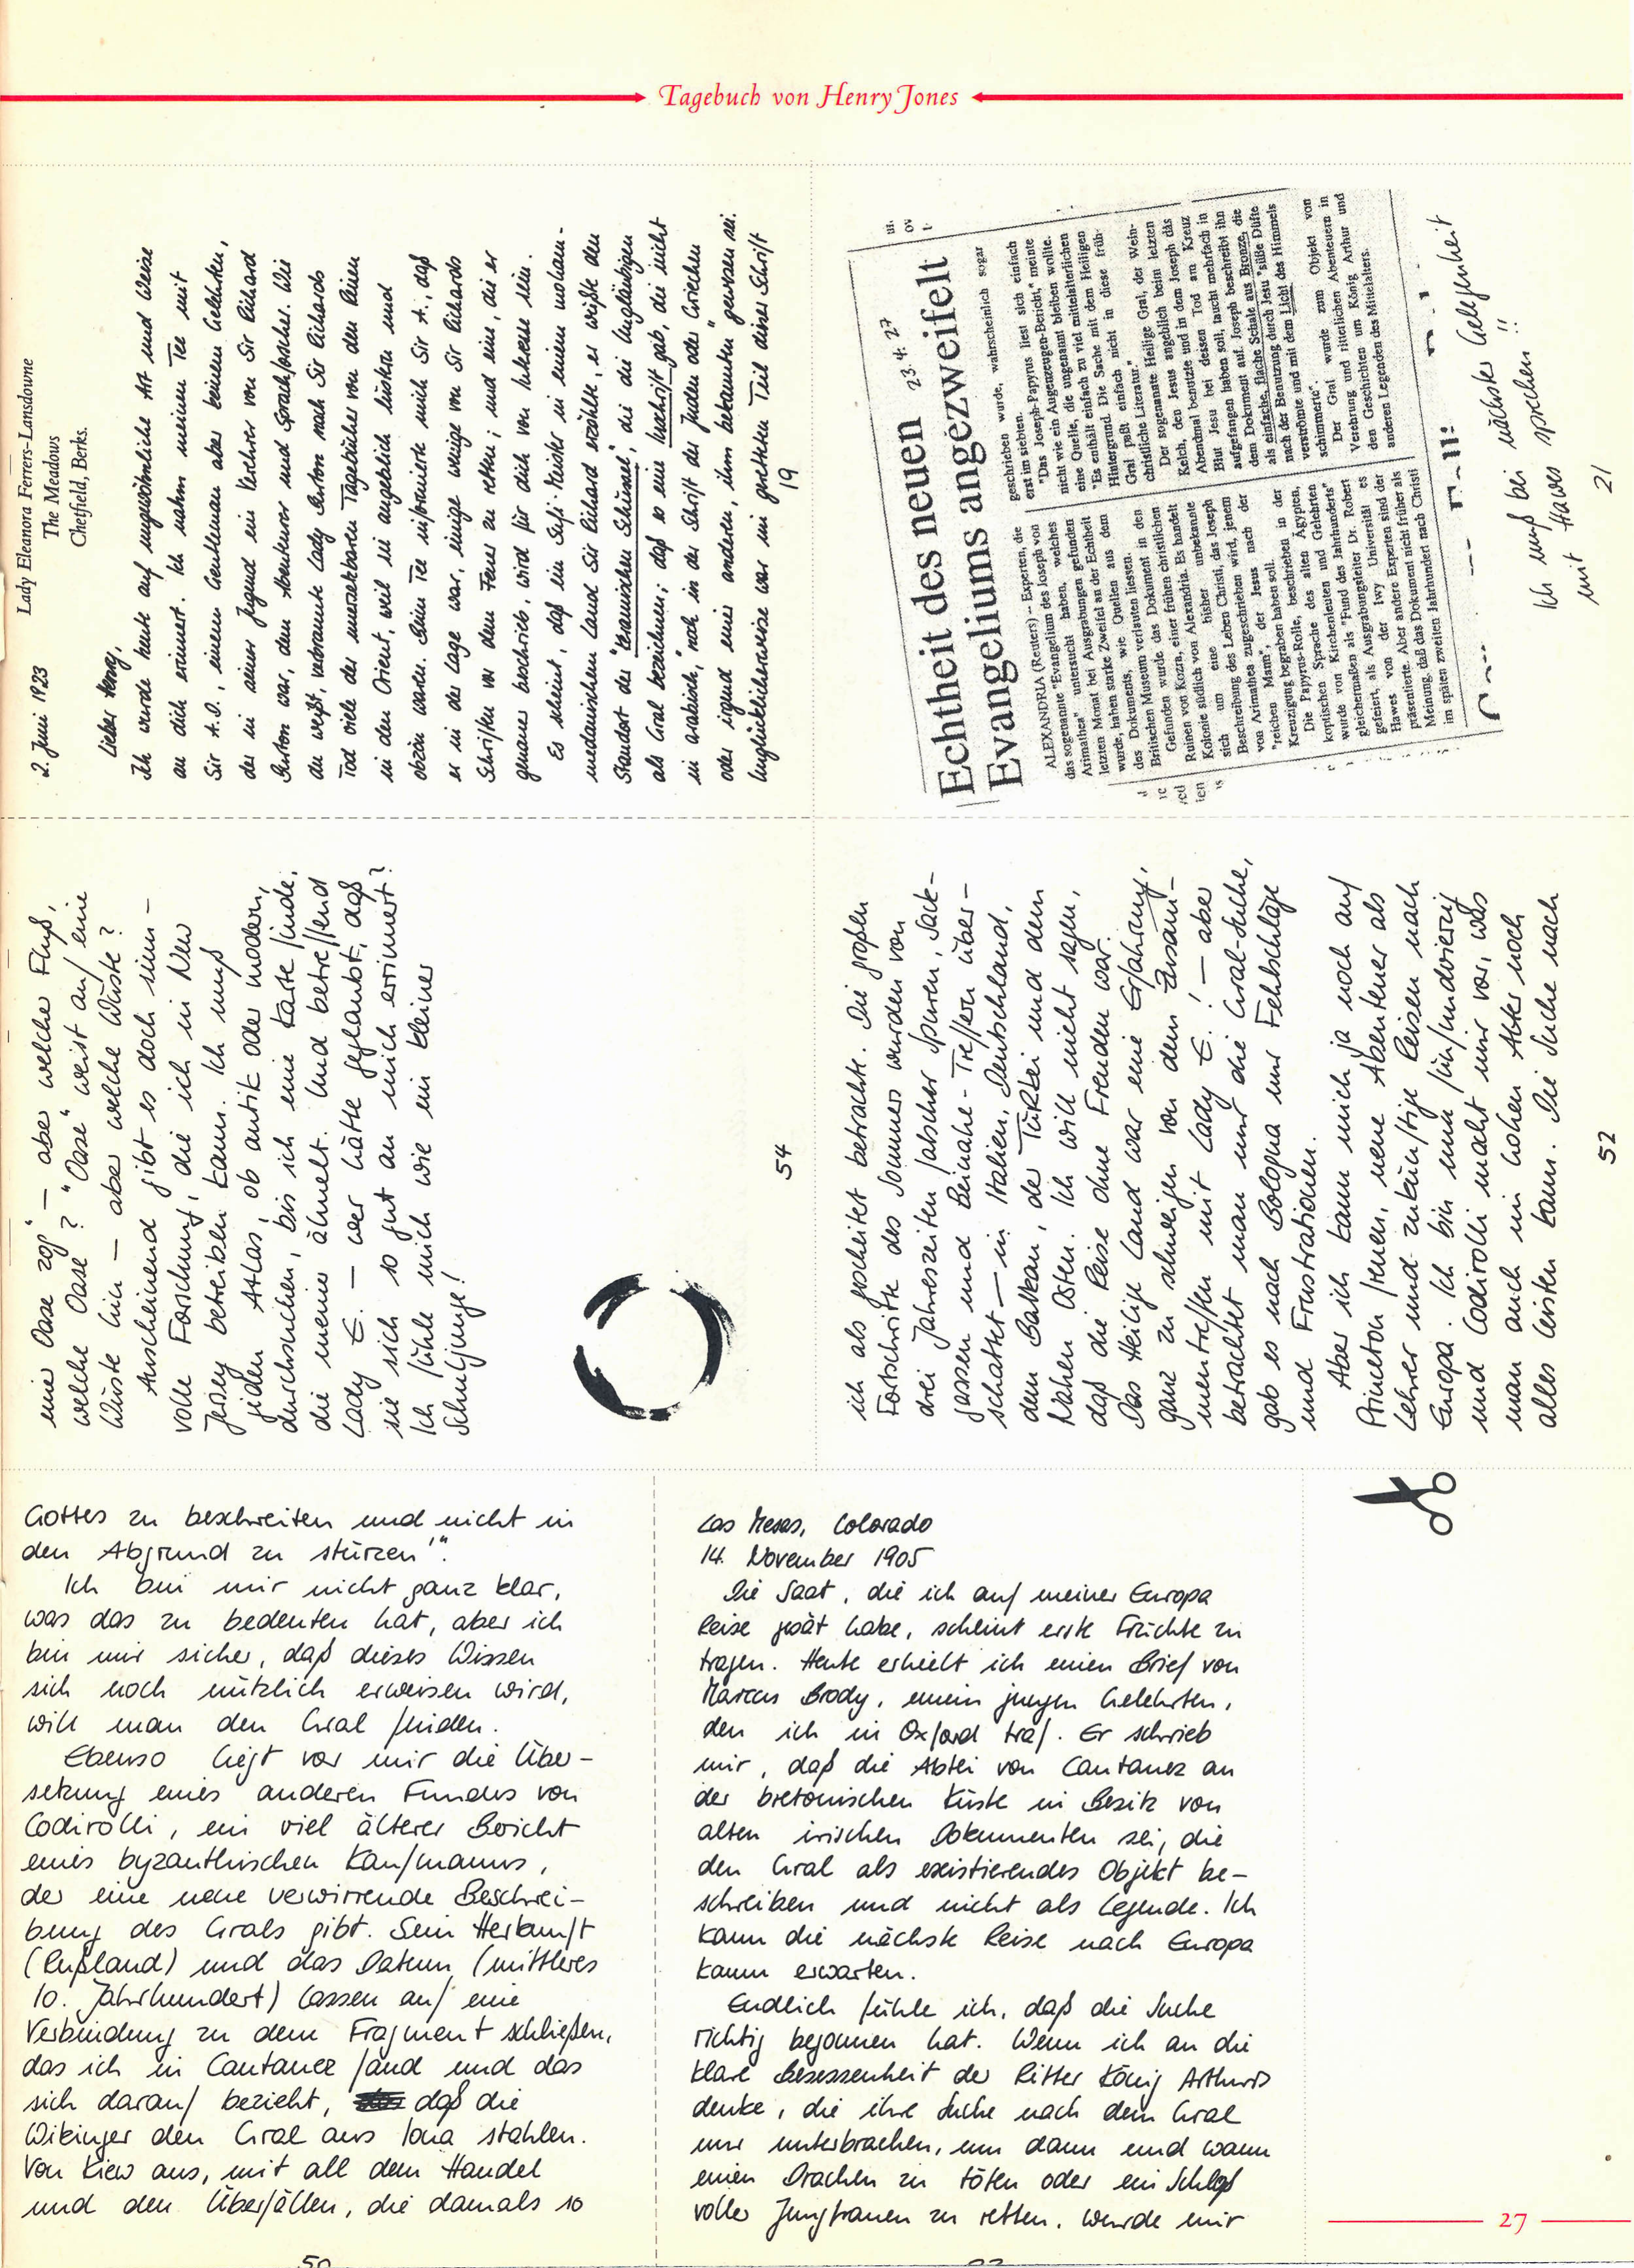 Tagebuch von Henry Jones
2. Juni 1923
Lady Eleanora Ferrers-Lansdowne
The Meadows
Chetfield, Berks.
Lieber Henry,
Ich wurde heute auf ungewöhnliche Art und Weise
an dich erinnert. Ich nahm meinen Tee mit
Sir A.D., einem Gentleman aber keinem Gelehrten,
der in seiner Jugend ein Verehrer von Sir Richard
Burton war, dem Abenteurer und Sprachforscher. Wie
du weißt, verbrannte Lady Burton nach Sir Richards
Tod viele der unersetzbaren Tagebücher von den Reisen
in den Orient, weil sie angeblich lüstern und
obzön waren. Beim Tee informierte mich Sir A., daß
er in der Lage war, einige wenige von Sir Richards
Schriften vor dem Feuer zu retten; und eine, die er
genauer beschrieb, wird für dich von Interesse sein.
Es scheint, daß ein Sufi-Meister in einem moham-
medanischen Land Sir Richard erzählte, er wüßte den
Standort der "keramischen Schüssel", die die Ungläubigen
als Gral bezeichnen; daß es eine Inschrift gab, die nicht
in arabisch, "noch in der Schrift der Juden oder Griechen
oder irgend einer anderen, ihm bekannten" gewesen sei.
Unglücklicherweise war im geretteten Teil dieser Schrift
19
23.4.27
Echtheit des neuen
Evangeliums angezweifelt
ALEXANDRIA (Reuters) -- Experten, die
das sogenannte "Evangelium des Joseph von
Arimathea" untersucht haben, welches
letzten Monat bei Ausgrabungen gefunden
wurde, haben starke Zweifel an der Echtheit
des Dokuments, wie Quellen aus dem
Britischen Museum verlauten liessen.
Gefunden wurde das Dokument in den
Ruinen von Kozra, einer frühen christlichen
Kolonie südlich von Alexandria. Es handelt
sich um eine bisher unbekannte
Beschreibung des Leben Christi, das Joseph
von Arimathea zugeschrieben wird, jenem
"reichen Mann", der Jesus nach der
Kreuzigung begraben haben soll.
Die Papyrus-Rolle, beschrieben in der
koptischen Sprache des alten Ägypten,
wurde von Kirchenleuten und Gelehrten
gleichermaßen als "Fund des Jahrhunderts"
gefeiert, als Ausgrabungsleiter Dr. Robert
Hawes von der Iwy Universität es
präsentierte. Aber andere Experten sind der
Meinung, daß das Dokument nicht früher als
im späten zweiten Jahrhundert nach Christi
geschrieben wurde, wahrscheinlich sogar
erst im siebten.
"Das Joseph-Papyrus liest sich einfach
nicht wie ein Augenzeugen-Bericht," meinte
eine Quelle, die ungenannt bleiben wollte.
"Es enthält einfach zu viel mittelalterlichen
Hintergrund. Die Sache mit dem Heiligen
Gral paßt einfach nicht in diese früh-
christliche Literatur."
Der sogenannte Heilige Gral, der Wein-
Kelch, den Jesus angeblich beim letzten
Abendmal benutzte und in dem Joseph das
Blut Jesu bei dessen Tod am Kreuz
aufgefangen haben soll, taucht mehrfach in
dem Dokument auf. Joseph beschreibt ihn
als einfache, flache Schale aus Bronze, die
nach der Benutzung durch Jesu "süße Düfte
verströmte und mit dem Licht des Himmels
schimmerte".
Der Gral wurde zum Objekt von
Verehrung und ritterlichen Abenteuern in
den Geschichten um König Arthur und
anderen Legenden des Mittelalters.
Ich muß bei nächster Gelegenheit
mit Hawes sprechen !!
21
eine Oase zog" – aber welche Fluß,
welche Oase? "Oase" weist auf eine
Wüste hin – aber welche Wüste?
Anscheinend gibt es doch sinn-
volle Forschung, die ich in New
Jersey betreiben kann. Ich muß
jeden Atlas, ob antik oder modern,
durchsuchen, bis ich eine Karte finde,
die meiner ähnelt. Und betreffend
Lady E. – wer hätte geglaubt, daß
sie sich so gut an mich erinnert?
Ich fühle mich wie ein kleiner
Schuljunge!
54
ich als gescheitert betrachte. Die großen
Fortschritte des Sommers wurden von
drei Jahreszeiten falscher Spuren, Sack-
gassen und Beinahe-Treffern über-
schattet – in Italien, Deutschland,
dem Balkan, der Türkei und dem
Nahen Osten. Ich will nicht sagen,
daß die Reise ohne Freuden war.
Das Heilige Land war eine Erfahrung,
ganz zu schweigen von dem Zusam-
mentreffen mit Lady E.! – aber
betrachtet man nur die Gral-Suche,
gab es nach Bologna nur Fehlschläge
und Frustrationen.
Aber ich kann mich ja noch auf
Princeton freuen, neue Abenteuer als
Lehrer und zukünftige Reisen nach
Europa. Ich bin nun fünfundvierzig
und Codirolli macht mir vor, was
man auch im hohen Alter noch
alles leisten kann. Die Suche nach
52
Gottes zu beschreiten und nicht in
den Abgrund zu stürzen'".
Ich bin mir nicht ganz klar,
was das zu bedeuten hat, aber ich
bin mir sicher, daß dieses Wissen
sich noch nützlich erweisen wird,
will man den Gral finden.
Ebenso liegt vor mir die Über-
setzung eines anderen Fundes von
Codirolli, ein viel älterer Bericht
eines byzanthischen Kaufmanns,
der eine neue verwirrende Beschrei-
bung des Grals gibt. Sein Herkunft
(Rußland) und das Datum (mittleres
10. Jahrhundert) lassen auf eine
Verbindung zu dem Fragment schließen,
das ich in Cantanez fand und das
sich darauf bezieht, daß die
Wikinger den Gral aus Iona stahlen.
Von Kiew aus, mit all dem Handel
und den Überfällen, die damals so
50
Las Mesas, Colorado
14. November 1905
Die Saat, die ich auf meiner Europa
Reise gesät habe, scheint erste Früchte zu
tragen. Heute erhielt ich einen Brief von
Marcus Brody, einem jungen Gelehrten,
den ich in Oxford traf. Er schrieb
mir, daß die Abtei von Cantanez an
der bretonischen Küste in Besitz von
alten irischen Dokumenten sei, die
den Gral als existierendes Objekt be-
schreiben und nicht als Legende. Ich
kann die nächste Reise nach Europa
kaum erwarten.
Endlich fühle ich, daß die Suche
richtig begonnen hat. Wenn ich an die
klare Besessenheit der Ritter König Arthurs
denke, die ihre Suche nach dem Gral
nur unterbrachen, um dann und wann
einen Drachen zu töten oder ein Schloß
voller Jungfrauen zu retten, wurde mir
27